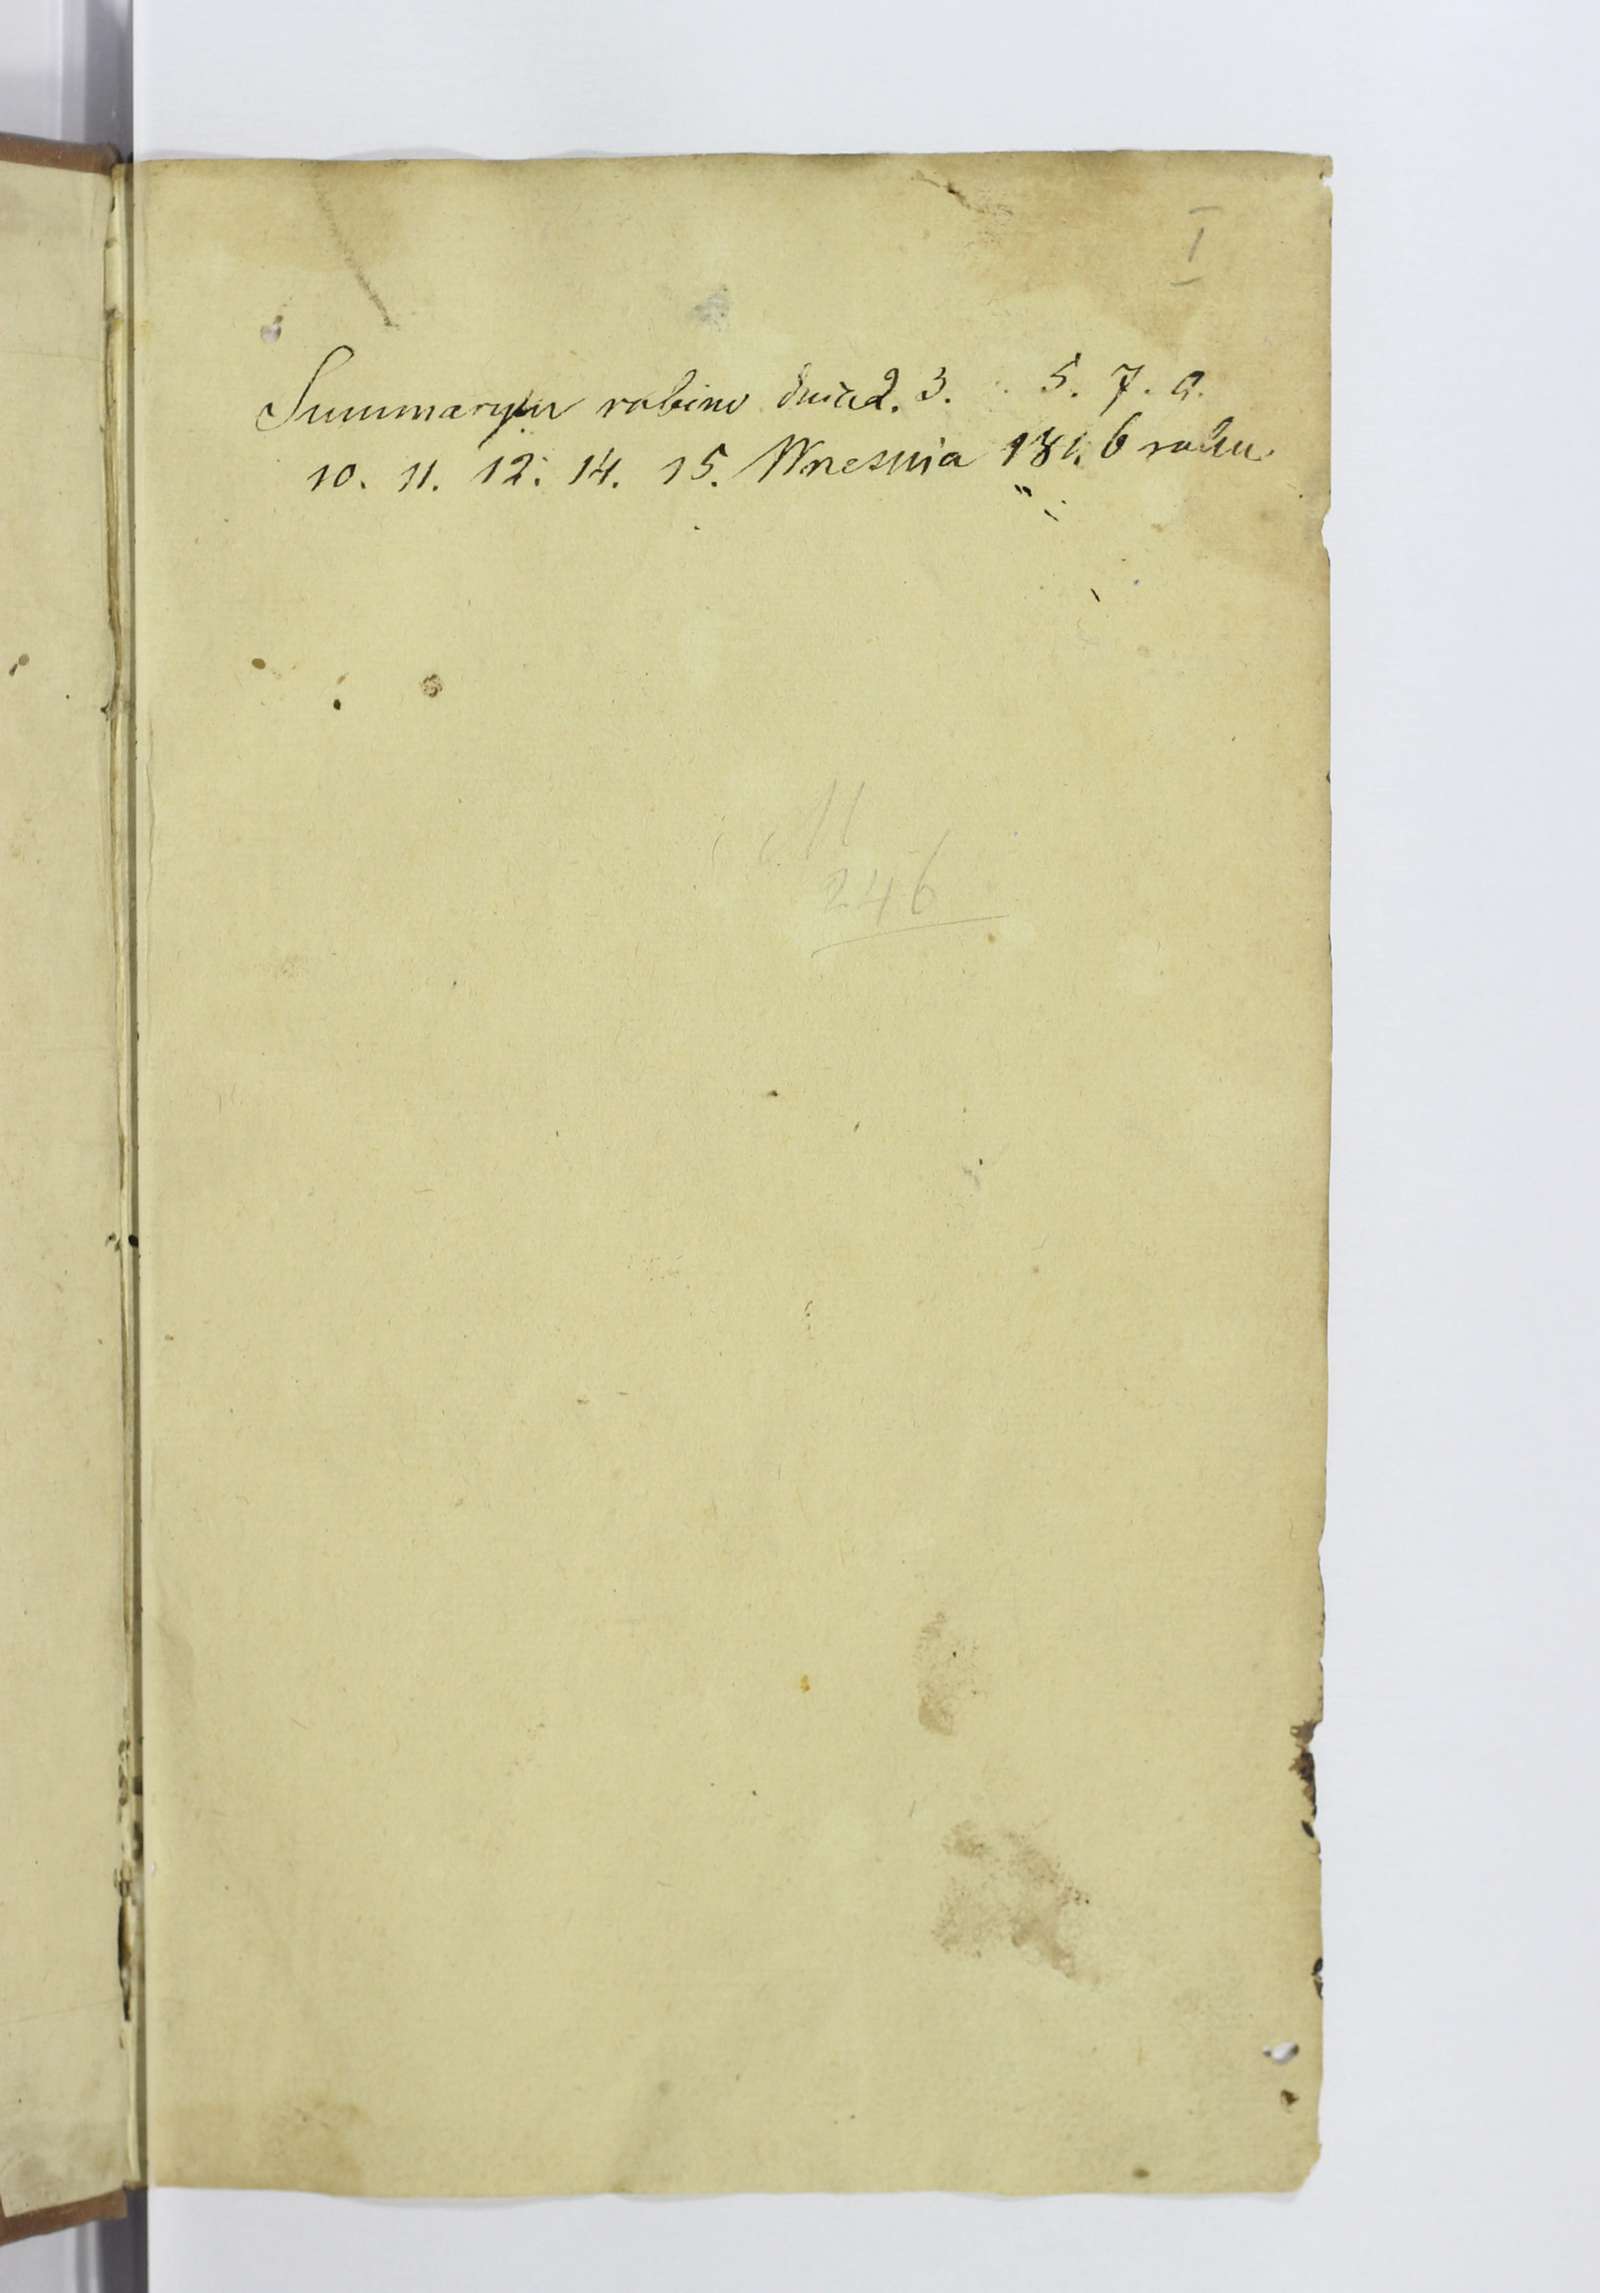 I
Summaryin robino dnia 2. 3. 5. 7. 9.
10. 11. 12. 14. 15. Wresnia 1816 roku.
246